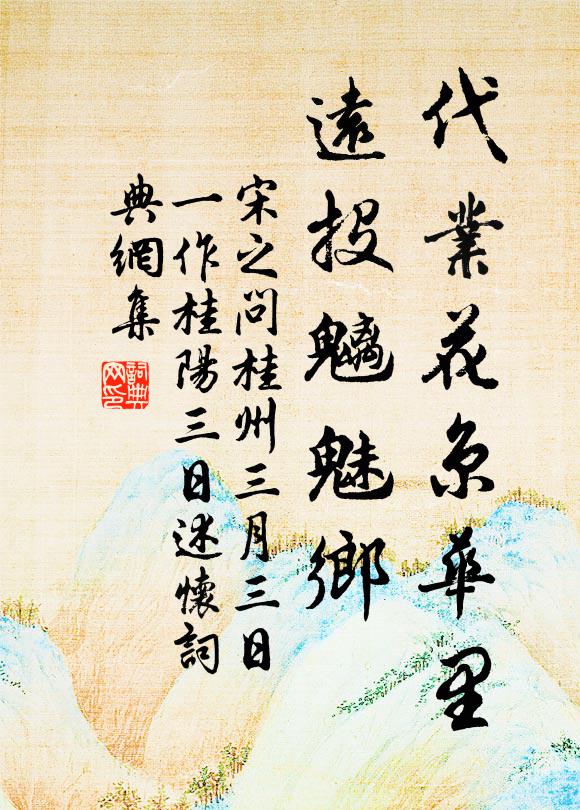 代業花京華里
遠投魑魅鄉
宋之問桂州三月三日
一作桂陽三日述懷詞
典網集
詞典
网印